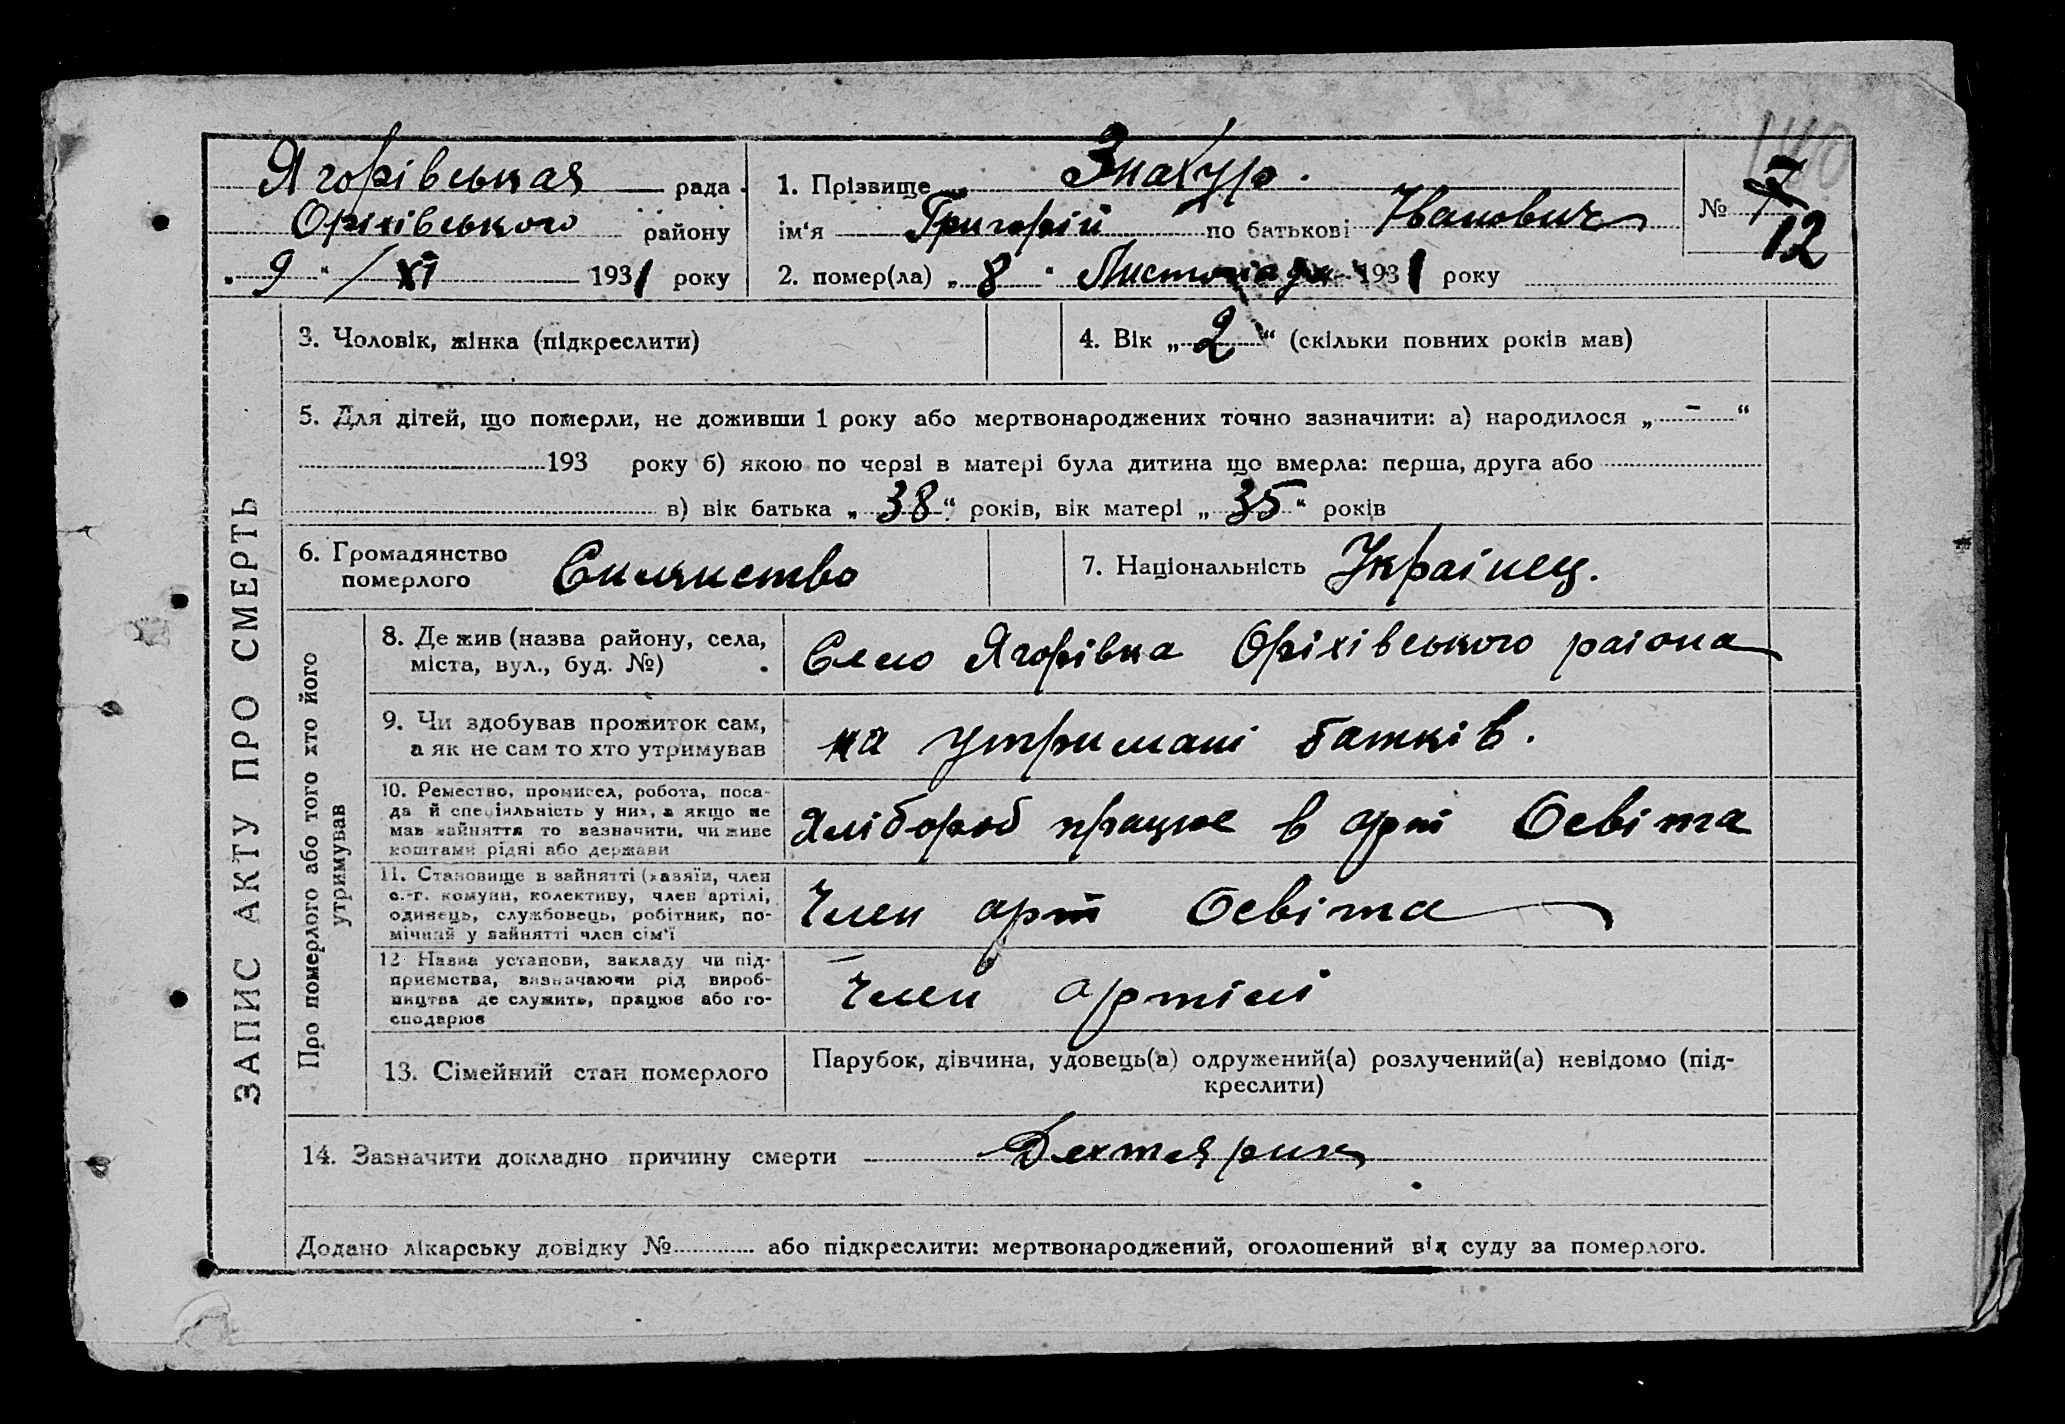 Ягорівськая рада
Оріхівського району
„ 9 “ / XI 1931 року
1. Прізвище
ім'я Григорій по батькові Іванович
2. помер(ла) „ 8 “ Листопада 1931 року
№ 12
140
ЗАПИС АКТУ ПРО СМЕРТЬ
3. Чоловік, жінка (підкреслити)
4. Вік „ 2 “ (скільки повних років мав)
5. Для дітей, що померли, не доживши 1 року або мертвонароджених точно зазначити: а) народилося „ - “
193 року б) якою по черзі в матері була дитина що вмерла: перша, друга або
в) вік батька „ 38 “ років, вік матері „ 35 “ років
6. Громадянство
померлого
7. Національність Українец.
Про померлого або того хто його
утримував
8. Де жив (назва району, села,
міста, вул., буд. №)
Село Ягорівка Оріхівського раіона
9. Чи здобував прожиток сам,
а як не сам то хто утримував
на утримані батків.
10. Ремество, промисел, робота, поса-
да й спеціяльність у них, а якщо не
мав зайняття то зазначити, чи живе
коштами рідні або держави
Хлібороб працює в арті Освіта
11. Становище в зайнятті (хазяїн, член
с.-г. комуни, колективу, член артілі,
одинець, службовець, робітник, по-
мічний у зайнятті член сім'ї
Член арт Освіта
12 Назва установи, закладу чи під-
приємства, визначаючи рід вироб-
ництва де служить, працює або го-
сподарює
Член артілі
13. Сімейний стан померлого
Парубок, дівчина, удовець(а) одружений(а) розлучений(а) невідомо (під-
креслити)
14. Зазначити докладно причину смерти Дехтярик
Додано лікарську довідку № або підкреслити: мертвонароджений, оголошений від суду за померлого.